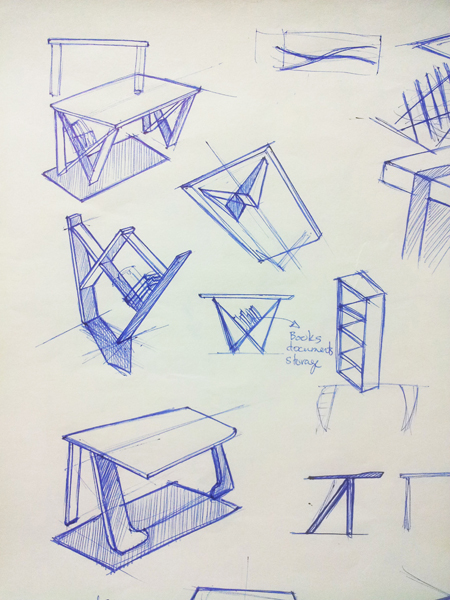 Books
documents
storage